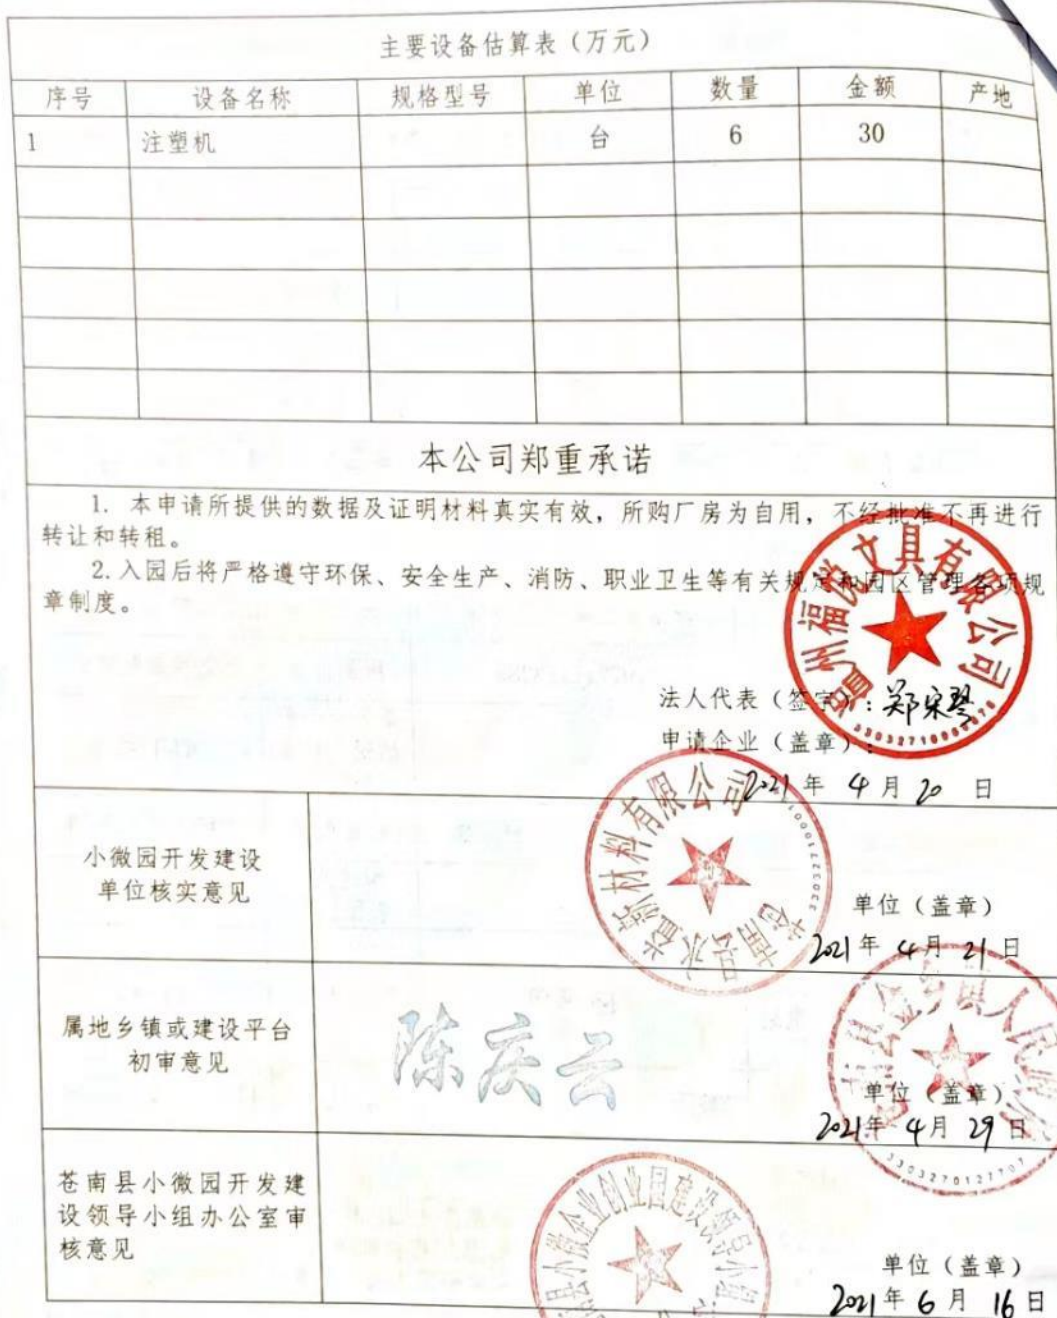 主要设备估算表（万元）
序号 设备名称 规格型号 单位 数量 金额 产地
1 注塑机 台 6 30
本公司郑重承诺
1. 本申请所提供的数据及证明材料真实有效，所购厂房为自用，不经批准不再进行
转让和转租。
2.入园后将严格遵守环保、安全生产、消防、职业卫生等有关规定和园区管理各项规
章制度。
福悦文具有限公司
法人代表（签字）：郑宋琴
申请企业（盖章）：
2021年 4月 20 日
小微园开发建设
单位核实意见
新材料有限公司
单位（盖章）
2021年 4月 21日
属地乡镇或建设平台
初审意见
陈庆云
金乡镇人民政府
单位（盖章）
2021年 4月 29日
3303270127707
苍南县小微园开发建
设领导小组办公室审
核意见
县小微企业创业园建设领导小组
单位（盖章）
2021年 6月 16日